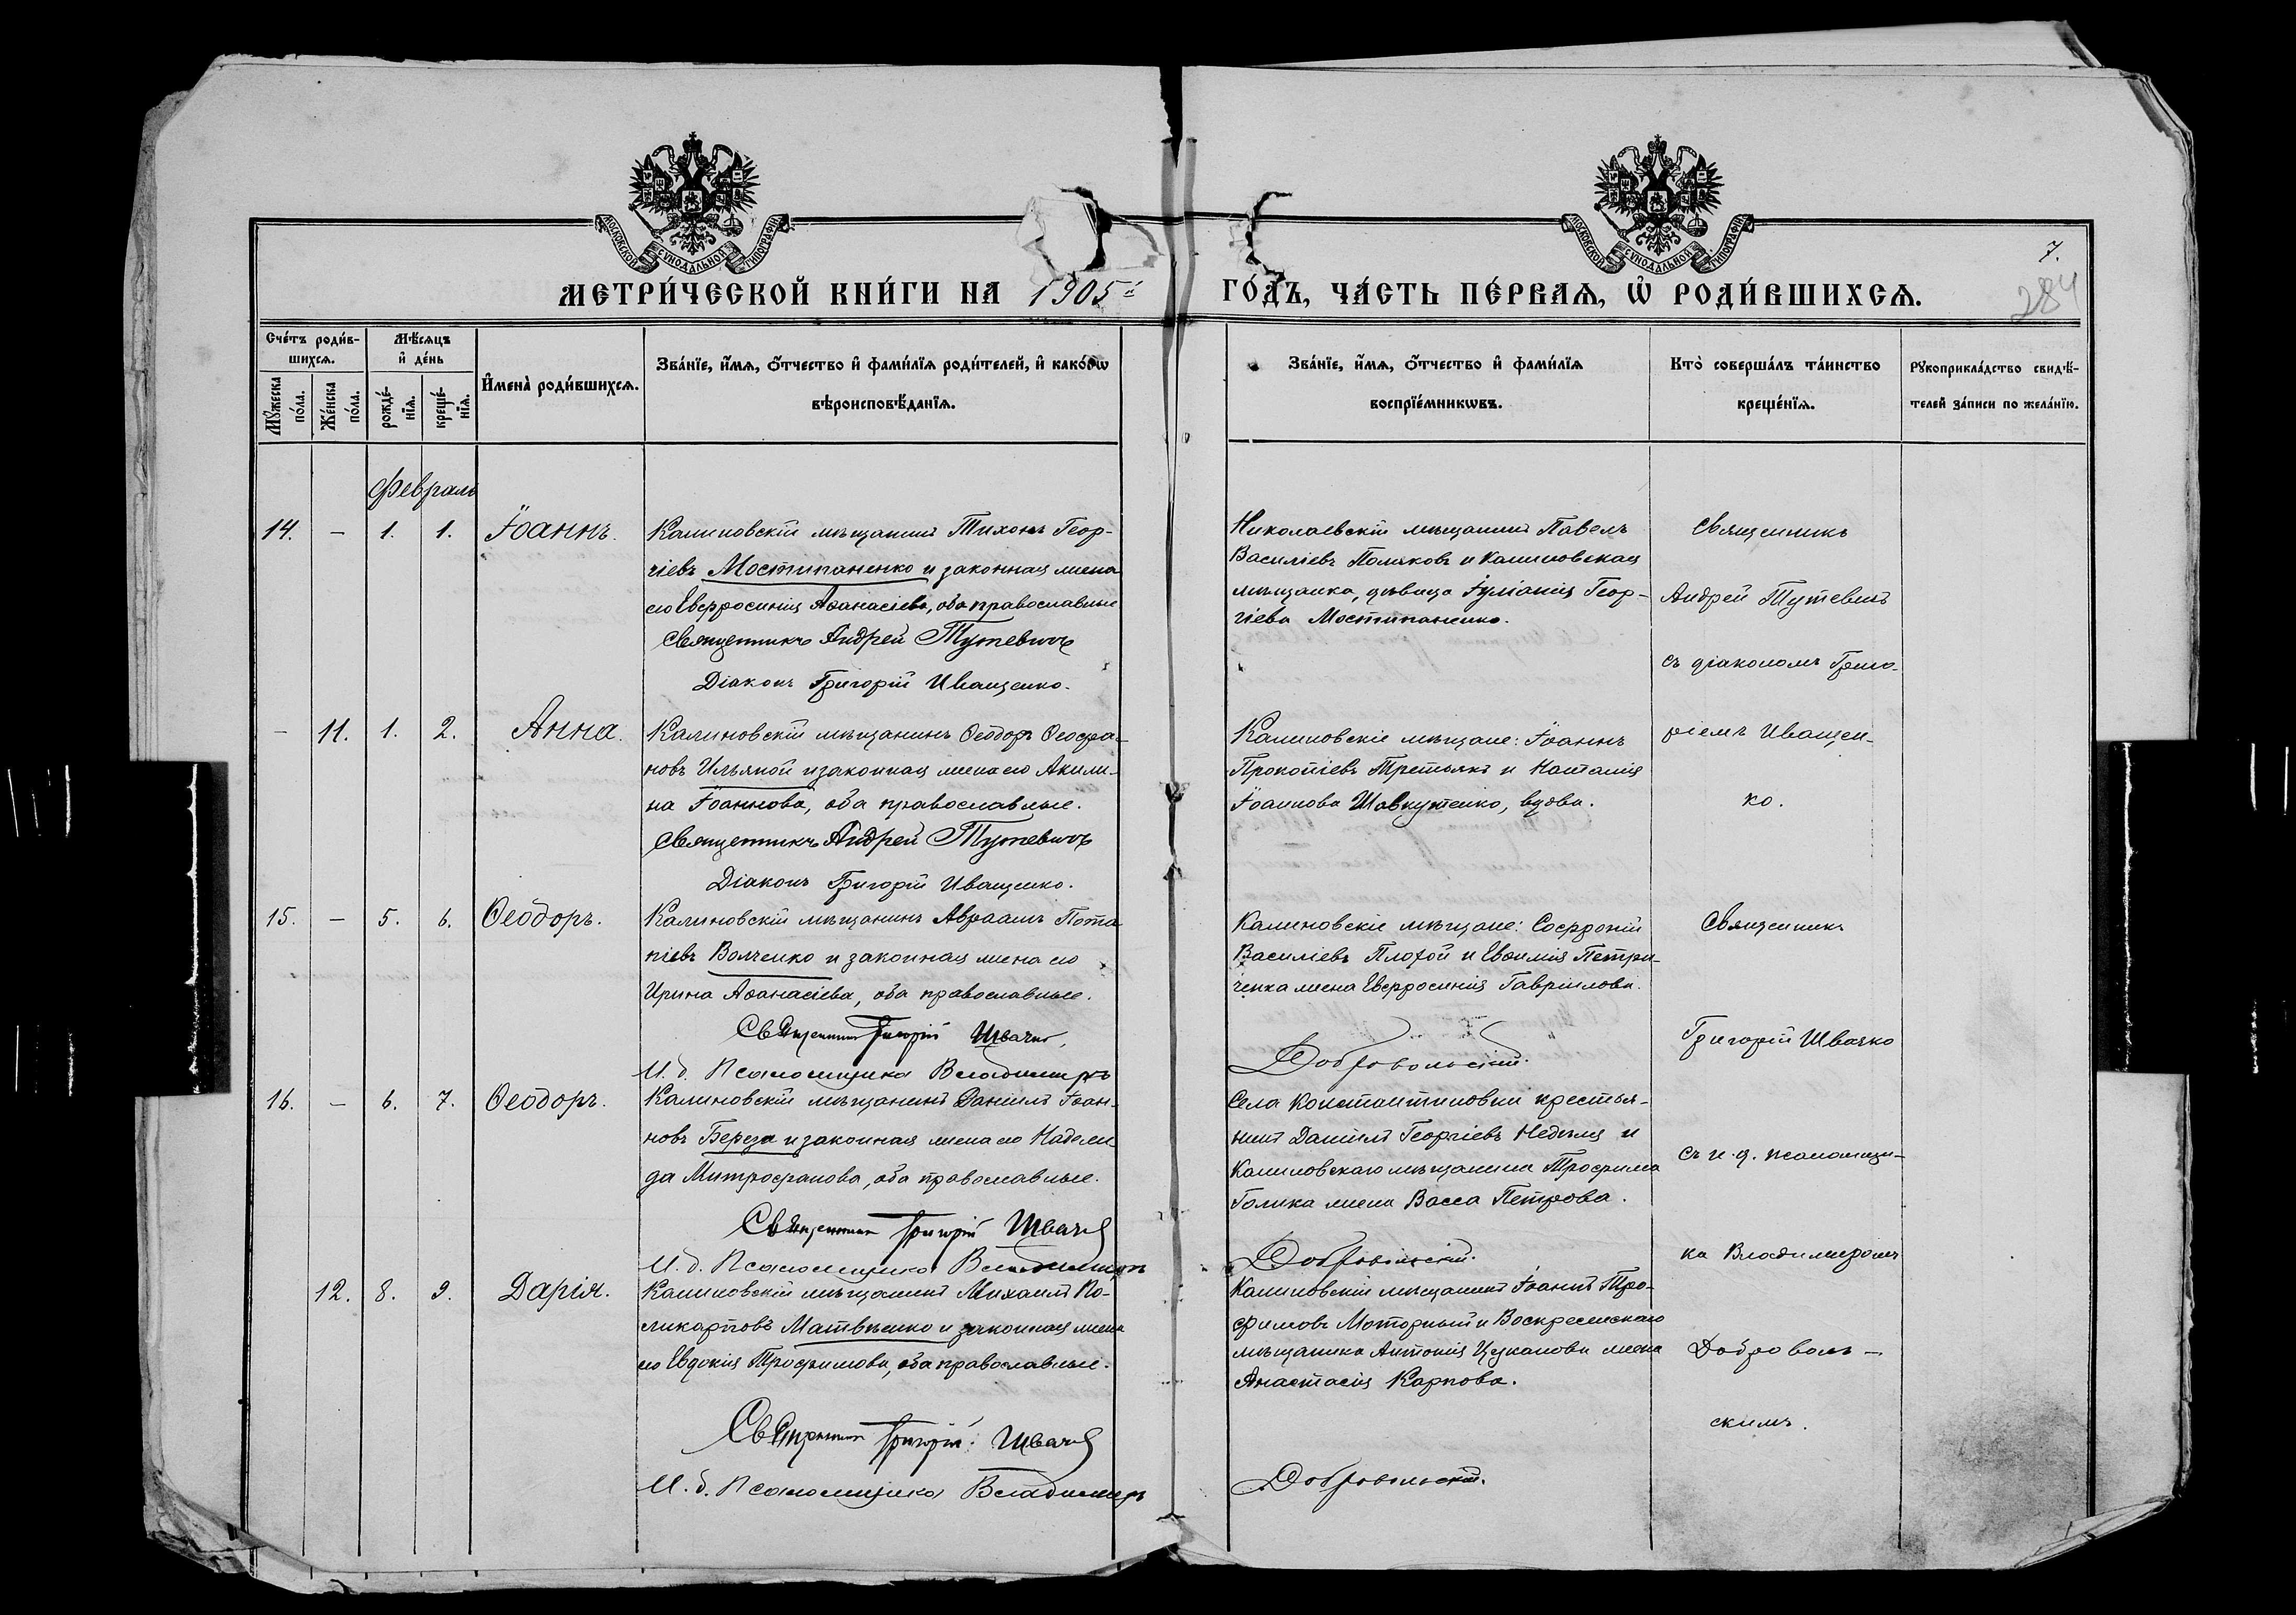 МОСКОВСКОЙ СѴНОДАЛЬНОЙ ТИПОГРАФІИ
МОСКОВСКОЙ СѴНОДАЛЬНОЙ ТИПОГРАФІИ
7.
284
МЕТРИ́ЧЕСКОЙ КНИ́ГИ НА 1905й ГО́ДЪ, ЧА́СТЬ ПЕ́РВАѦ, Ѡ҆ РОДИ́ВШИХСѦ.
Сче́тъ роди́в-
шихсѧ.
Мꙋ́жеска по́ла.
Же́нска по́ла.
Мѣ́сѧцъ
и҆ де́нь
рожде́-
нїѧ.
креще́-
нїѧ.
И҆мена̀ роди́вшихсѧ.
Зва́нїе, и҆́мѧ, ѻ҆́тчество и҆ фами́лїѧ роди́телей, и҆ како́гѡ
вѣроисповѣ́данїѧ.
Зва́нїе, и҆́мѧ, ѻ҆́тчество и҆ фами́лїѧ
воспрїе́мникѡвъ.
Кто̀ соверша́лъ та́инство
креще́нїѧ.
Рꙋкоприкла́дство свидѣ́-
телей за́писи по жела́нїю.
Февраль
14. — 1. 1. Іоаннъ.
Калиновскій мѣщанинъ Тихонъ Геор-
гіевъ Мостипаненко и законная жена
его Евфросинія Аѳанасіева, оба православные
Священникъ Андрей Тутевичъ
Діаконъ Григорій Иващенко.
Николаевскій мѣщанинъ Павелъ
Василіевъ Поляковъ и Калиновская
мѣщанка, дѣвица Іуліанія Геор-
гіева Мостипаненко.
Священникъ
Андрей Тутевичъ
съ діакономъ Григо-
ріемъ Иващен-
ко.
— 11. 1. 2. Анна.
Калиновскій мѣщанинъ Ѳеодоръ Ѳеофа-
новъ Ильяной и законная жена его Акили-
на Іоаннова, оба православные.
Священникъ Андрей Тутевичъ
Діаконъ Григорій Иващенко.
Калиновскіе мѣщане: Іоаннъ
Прокопіевъ Третьякъ и Наталія
Іоаннова Шовкутенко, вдова.
15. — 5. 6. Ѳеодоръ.
Калиновскій мѣщанинъ Авраамъ Пота-
піевъ Волченко и законная жена его
Ирина Аѳанасіева, оба православные.
Священникъ Григорій Швачко,
И. д. Псаломщика Владимиръ Добровольскій.
Калиновскіе мѣщане: Софроній
Василіевъ Плохой и Евѳимія Петри-
ченка жена Евфросинія Гавріилова.
Священникъ
Григорій Швачко
съ и. д. псаломщи-
ка Владимиромъ
Доброволь-
скимъ.
16. — 6. 7. Ѳеодоръ.
Калиновскій мѣщанинъ Даніилъ Іоан-
новъ Береза и законная жена его Надеж-
да Митрофанова, оба православные.
Священникъ Григорій Швачко
И. д. Псаломщика Владимиръ Добровольскій.
Села Константиновки крестья-
нинъ Даніилъ Георгіевъ Недиля и
Калиновскаго мѣщанина Трофима
Голика жена Васса Петрова.
12. 8. 9. Дарія.
Калиновскій мѣщанинъ Михаилъ По-
ликарповъ Матвѣенко и законная жена
его Евдокія Трофимова, оба православные.
Священникъ Григорій Швачко
И. д. Псаломщика Владимиръ Добровольскій.
Калиновскій мѣщанинъ Іоаннъ Тро-
фимовъ Моторный и Воскресенскаго
мѣщанина Антонія Цуканова жена
Анастасія Карпова.